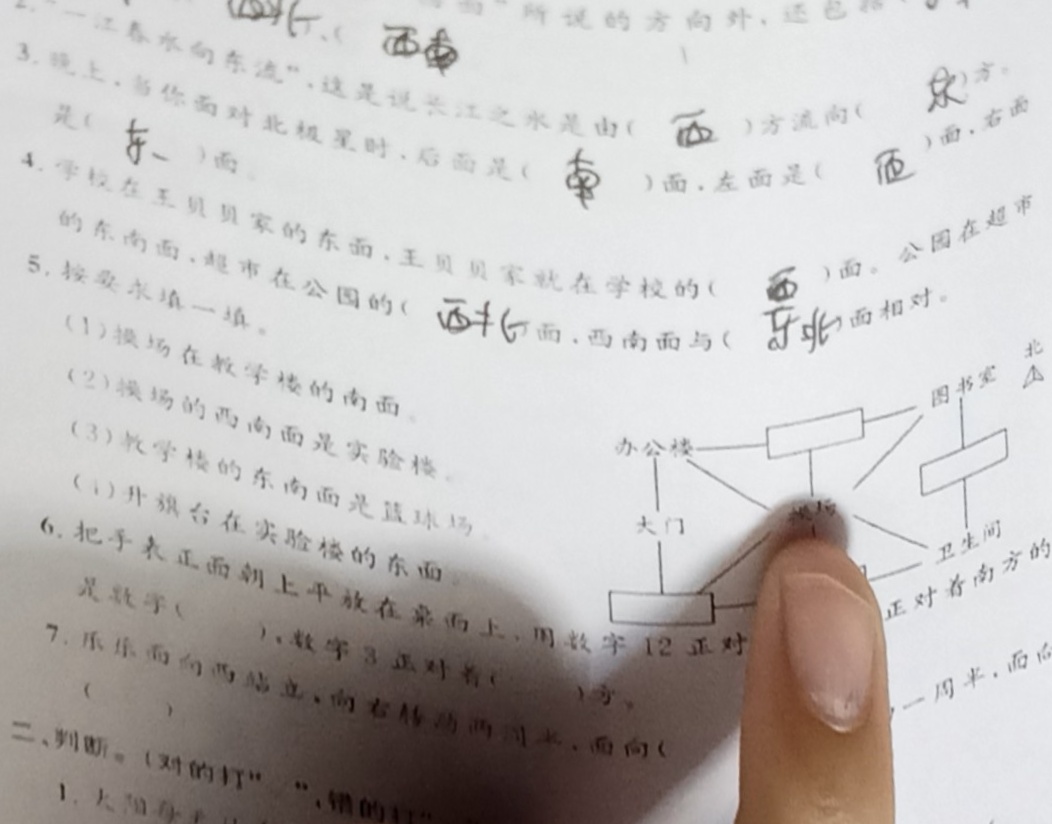 面"所说的方向外，还包括
西南
"一江春水向东流"，这是说长江之水是由(西)方流向(东)方。
3.晚上，当你面对北极星时，后面是(南)面，左面是(西)面，右面
是(东)面。
4.学校在王贝贝家的东面，王贝贝家就在学校的(西)面。公园在超市
的东南面，超市在公园的(西北)面，西南面与(东北)面相对。
5.按要求填一填。
(1)操场在教学楼的南面。
(2)操场的西南面是实验楼。
(3)教学楼的东南面是篮球场
(4)升旗台在实验楼的东面。
北
图书室
办公楼
操场
大门
卫生间
6.把手表正面朝上平放在桌面上，用数字12正对 正对着南方的
是数字( )，数字3正对着( )方。
7.乐乐面向西站立，向右转动两周半，面向( 一周半，面向
( )
二、判断。(对的打" "，错的打"
1.太阳